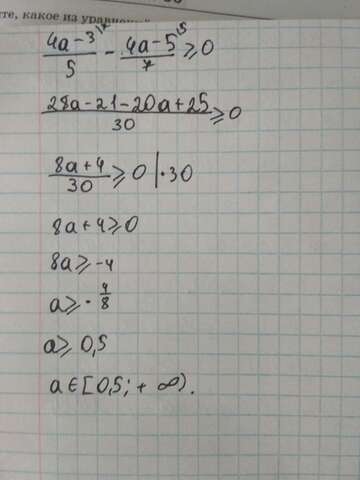 те, какое из уравнений
(4a-3)/5 \7 - (4a-5)/7 \5 ≥ 0
(28a-21-20a+25)/30 ≥ 0
(8a+4)/30 ≥ 0 |·30
8a+4≥0
8a≥-4
a≥-4/8
a≥ 0,5
a∈[0,5; +∞).